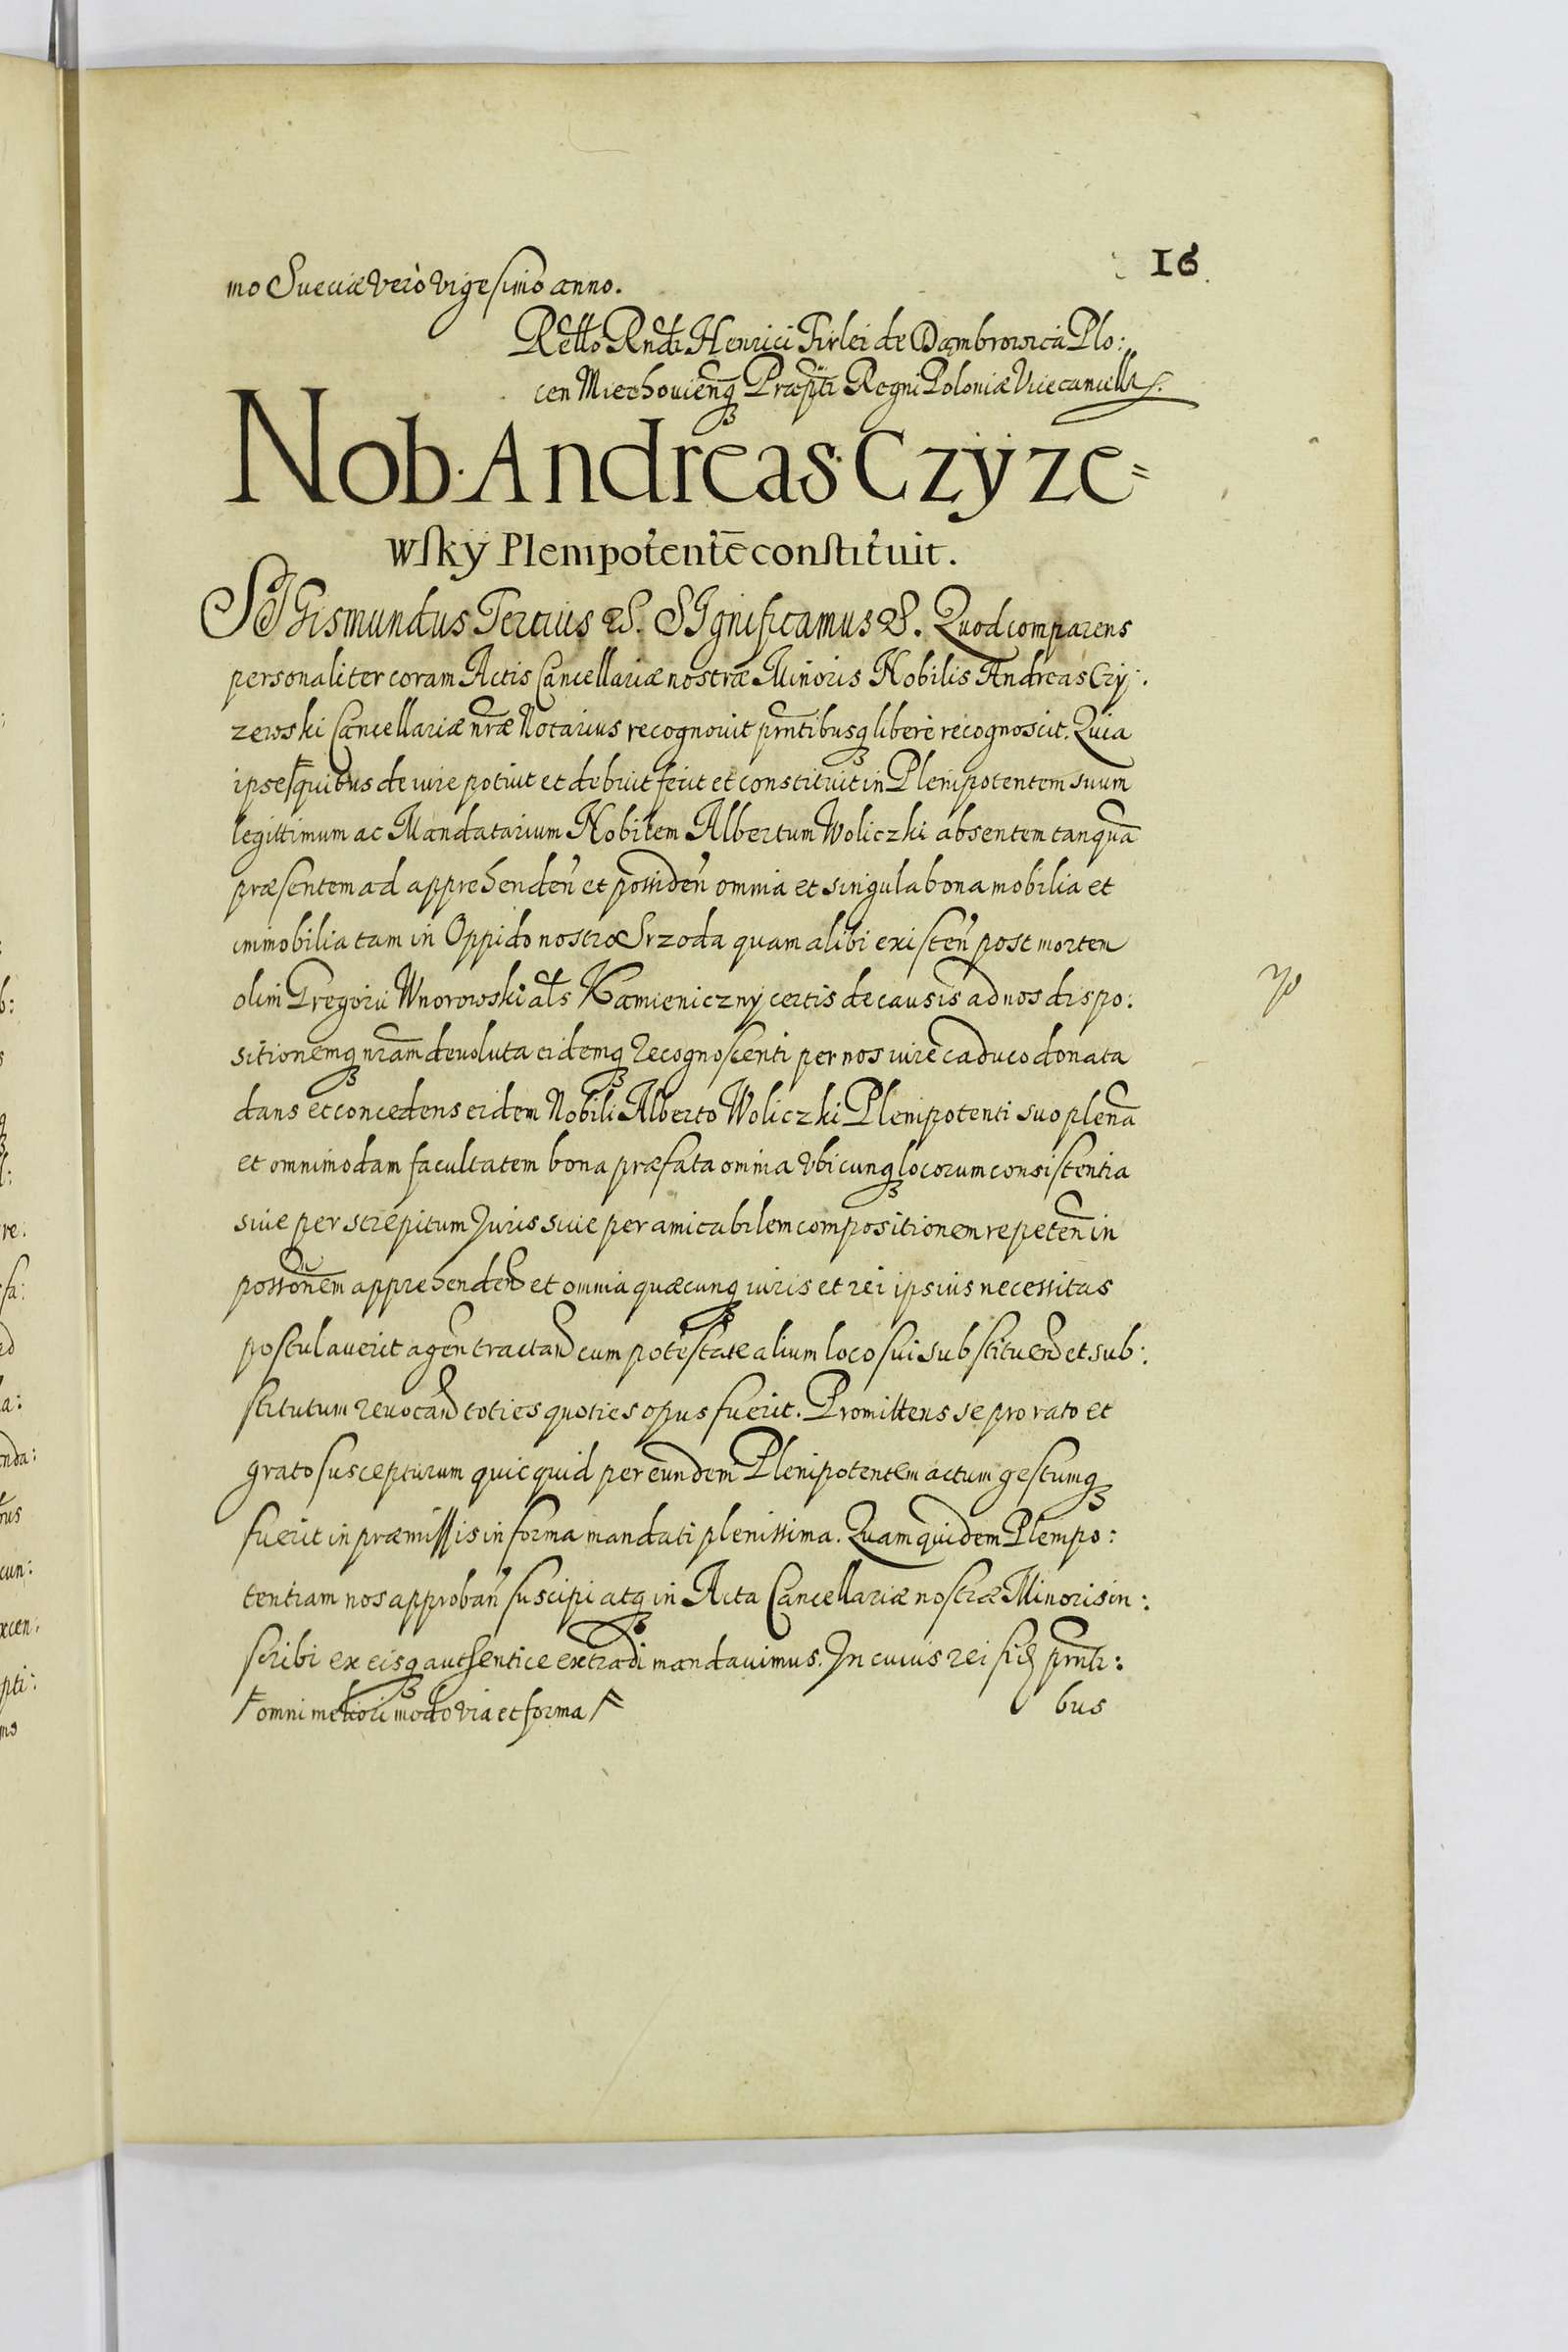 16
mo Sueciæ verò vigesimo anno.
Rello Rndi Henrici Firlei de Dąmbrowica Plo:
cen Miechouienq₃ Præpti Regni Poloniæ Vicecancellr.
Nob. Andreas Czÿze=
wskÿ Plenipotentē constituit.
SIGismundus Tertius &. SIgnificamus &. Quod comparens
personaliter coram Actis Cancellariæ nostræ Minoris Nobilis Andreas Czÿ:
zewski Cancellariæ nræ Notarius recognouit pñtibusq₃ liberè recognoscit. Quia
ipse quibus de iure potuit et debuit fecit et constituit in Plenipotentem suum
legittimum ac Mandatarium Nobilem Albertum Woliczki absentem tanquā
præsentem ad apprehendeñ et possideñ omnia et singula bona mobilia et
immobilia tam in Oppido nostro Srzoda quam alibi existeñ post mortem
olim Gregorii Wnorowski als Kamieniczny certis de causis ad nos dispo:
sitionemq₃ nram deuoluta eidemq₃ recognoscenti per nos iure caduco donata
dans et concedens eidem Nobili Alberto Woliczki Plenipotenti suo plenā
et omnimodam facultatem bona præfata omnia vbicunq₃ locorum consistentia
siue per strepitum Juris siue per amicabilem compositionem repeteñ in
possoñem apprehendeñ et omnia quæcunq₃ iuris et rei ipsius necessitas
postulauerit ageñ tractañ cum potestate alium loco sui substitueñ et sub:
stitutum reuocañ toties quoties opus fuerit. Promittens se pro rato et
grato suscepturum quicquid per eundem Plenipotentem actum gestumq₃
fuerit in præmissis in forma mandati plenissima. Quam quidem Plempo:
tentiam nos approbañ suscipi atq₃ in Acta Cancellariæ nostræ Minoris in:
scribi ex eisq₃ authentice extradi mandauimus. In cuius rei fid pñti:
omni meliori modo via et forma
bus